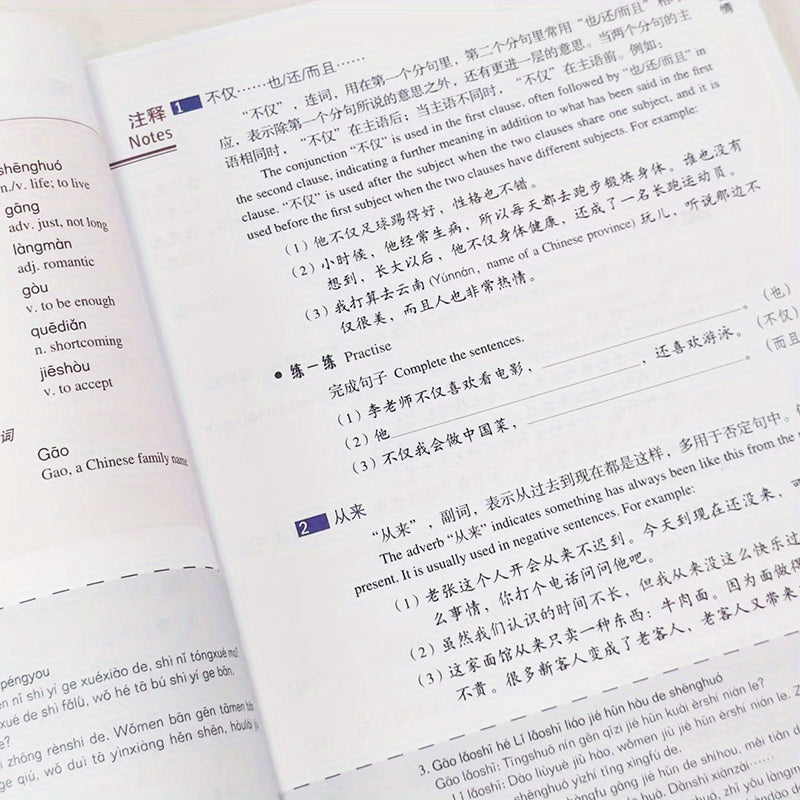 shēnghuó
n./v. life; to live
gāng
adv. just, not long
làngmàn
adj. romantic
gòu
v. to be enough
quēdiǎn
n. shortcoming
jiēshòu
v. to accept
词
Gāo
Gao, a Chinese family name
péngyou
nǐ shì yí ge xuéxiào de, shì nǐ tóngxué ma?
xué de shì fǎlǜ, wǒ hé tā bú shì yí ge bān.
zhōng rènshi de. Wǒmen bān gēn tāmen bān
ge qiú, wǒ duì tā yìnxiàng hěn shēn, hòulái jiù
情
注释
Notes
1 不仅……也/还/而且……
“不仅”，连词，用在第一个分句里，第二个分句里常用“也/还/而且”
应，表示除第一个分句所说的意思之外，还有更进一层的意思。当两个分句的主
语相同时，“不仅”在主语后；当主语不同时，“不仅”在主语前。例如：
The conjunction “不仅” is used in the first clause, often followed by “也/还/而且” in
the second clause, indicating a further meaning in addition to what has been said in the first
clause. “不仅” is used after the subject when the two clauses share one subject, and it is
used before the first subject when the two clauses have different subjects. For example:
（1）他不仅足球踢得好，性格也不错。
（2）小时候，他经常生病，所以每天都去跑步锻炼身体。谁也没有
想到，长大以后，他不仅身体健康，还成了一名长跑运动员。
（3）我打算去云南 (Yúnnán, name of a Chinese province) 玩儿，听说那边不
仅很美，而且人也非常热情。
● 练一练 Practise
完成句子 Complete the sentences.
（1）李老师不仅喜欢看电影，。（也）
（2）他，还喜欢游泳。（不仅）
（3）不仅我会做中国菜，。（而且
2 从来
“从来”，副词，表示从过去到现在都是这样，多用于否定句中。
The adverb “从来” indicates something has always been like this from the
present. It is usually used in negative sentences. For example:
（1）老张这个人开会从来不迟到。今天到现在还没来，可
么事情，你打个电话问问他吧。
（2）虽然我们认识的时间不长，但我从来没这么快乐过
（3）这家面馆从来只卖一种东西：牛肉面。因为面做得
不贵。很多新客人变成了老客人，老客人又带来
3. Gāo lǎoshī hé Lǐ lǎoshī liáo jié hūn hòu de shēnghuó
Gāo lǎoshī: Tīngshuō nín gēn qīzi jié hūn kuài èrshí nián le?
Lǐ lǎoshī: Dào liùyuè jiǔ hào, wǒmen jiù jié hūn èrshí nián le.
shēnghuó yìzhí tǐng xìngfú de.
gāng jié hūn de shíhou, měi tiān
Dànshì xiànzài……